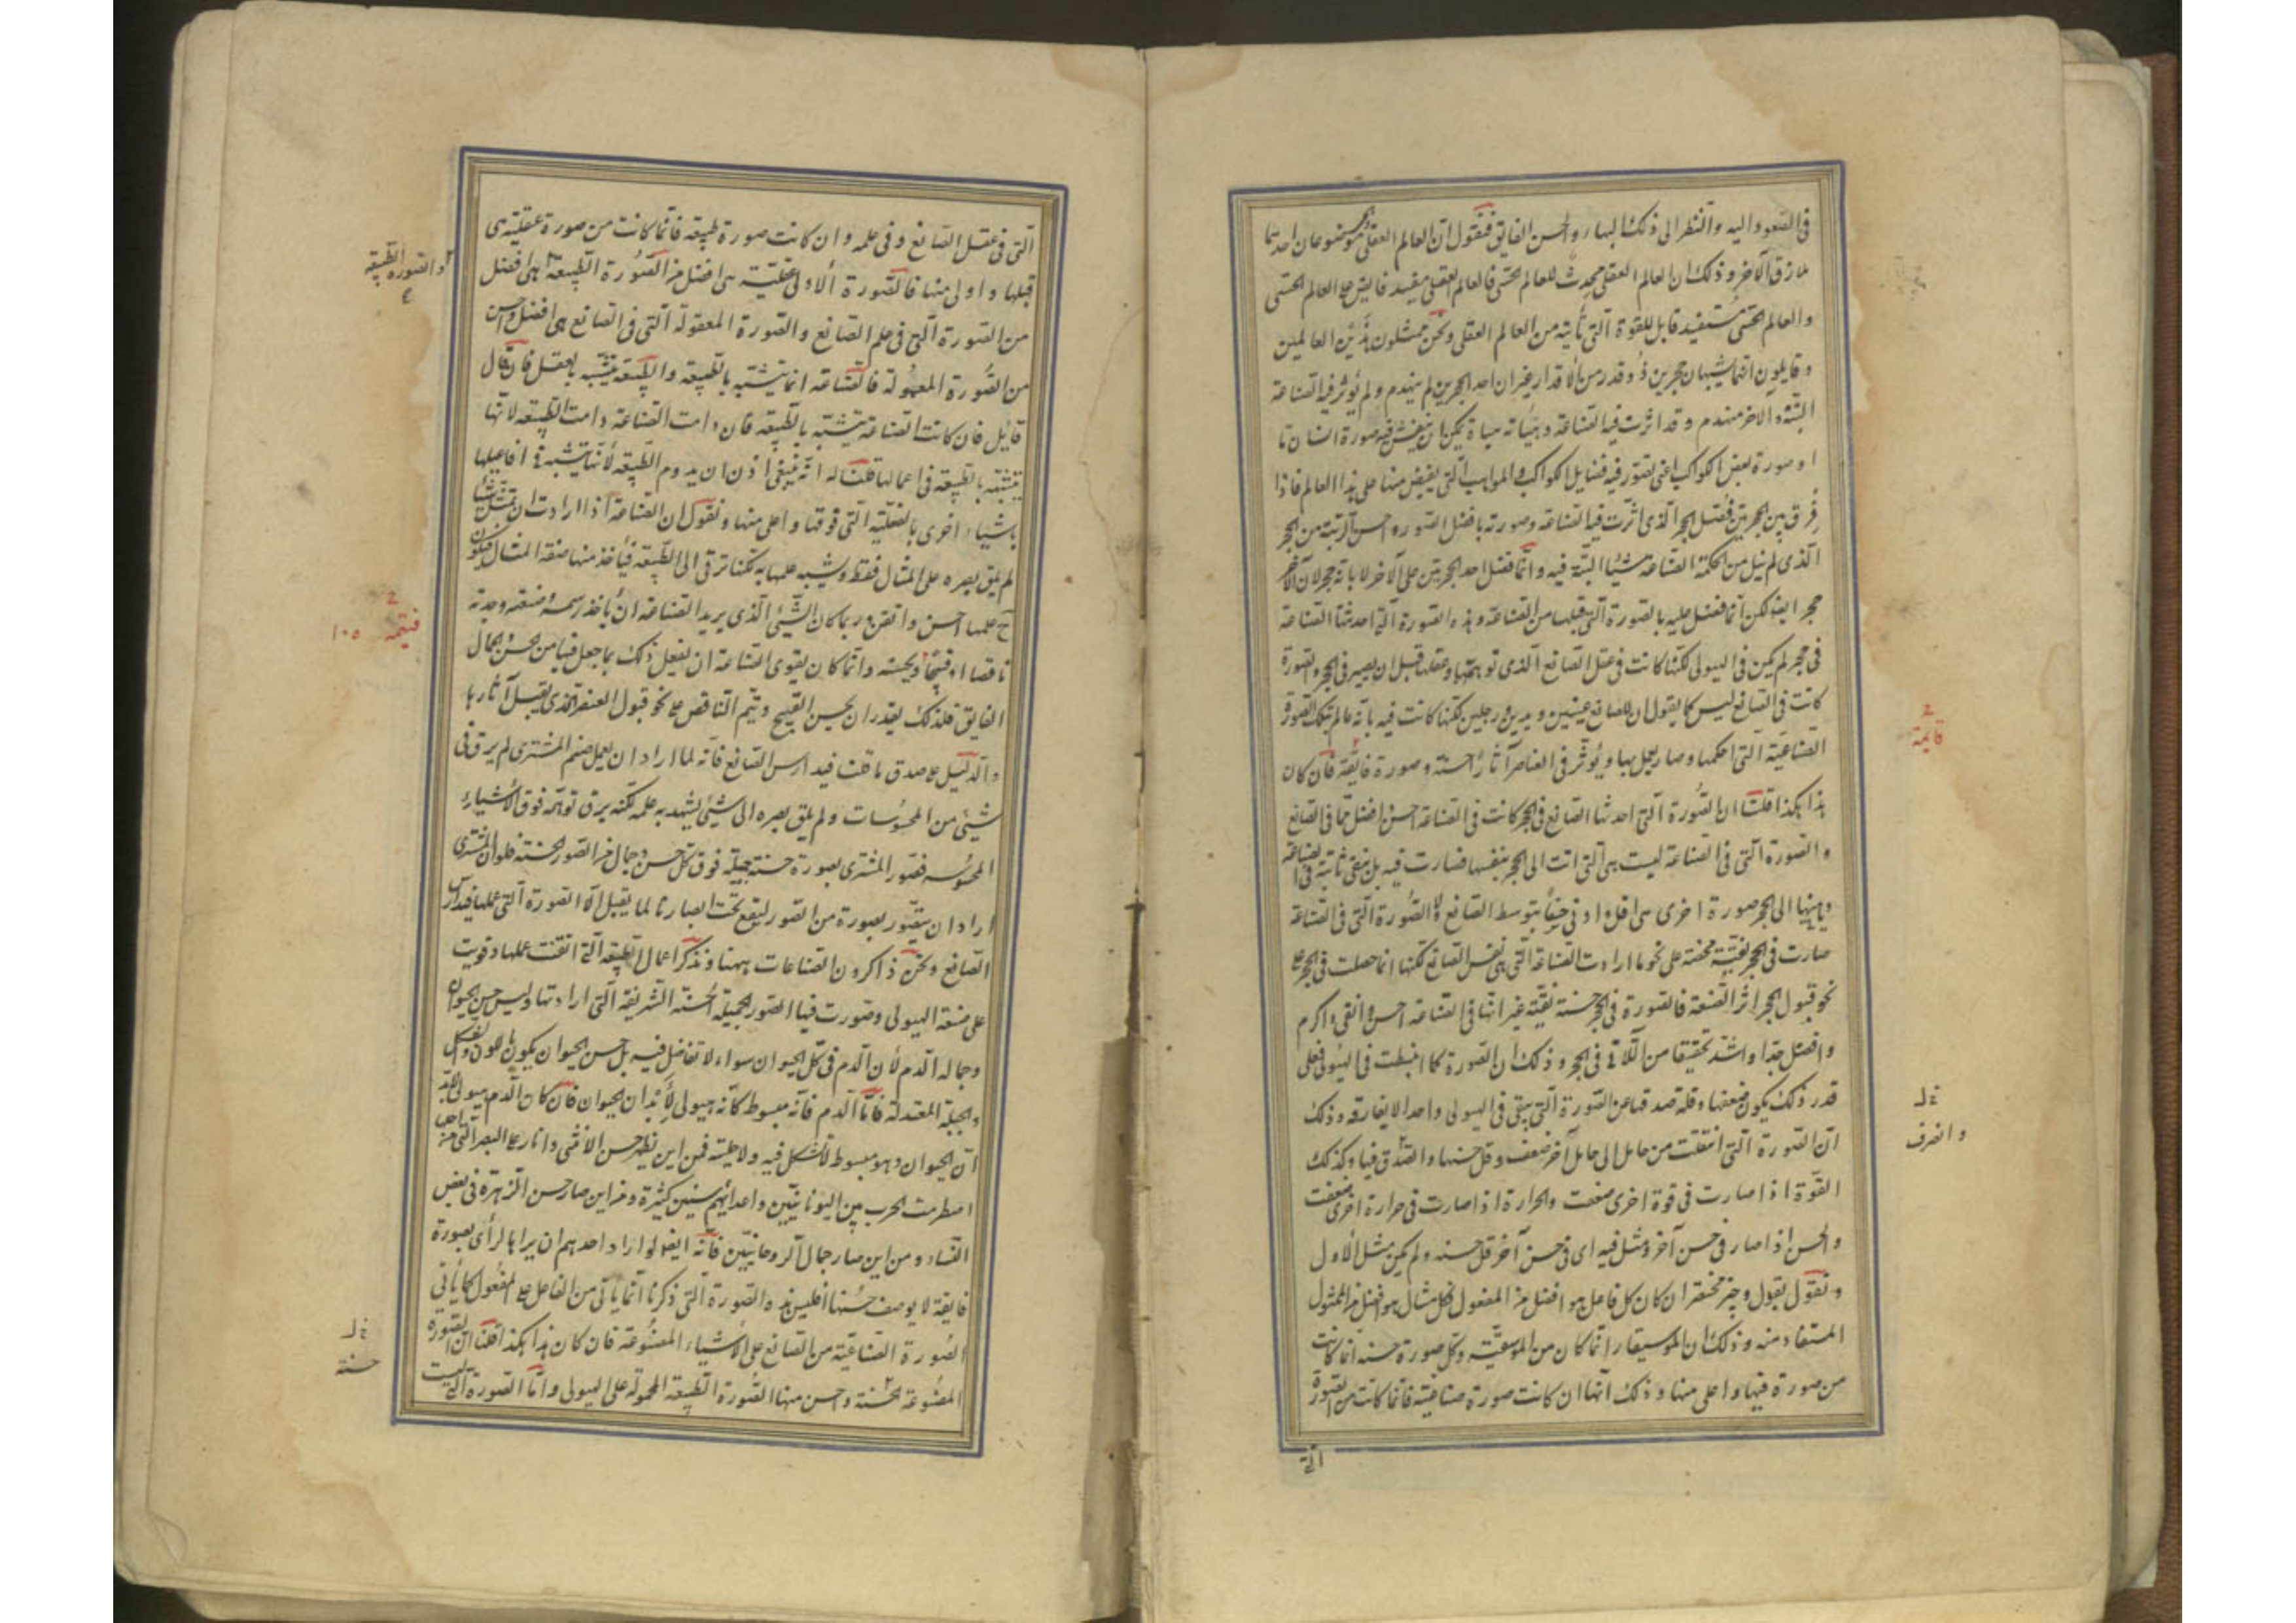 فى الصعود اليه والنظر الى ذلك البهاء والحسن الفايق فنقول ان العالم العقلى والحسى موضوعان احدهما
ملازق الآخر وذلك ان العالم العقلى محدث للعالم الحسى فالعالم العقلى مفيد فايض على العالم الحسى
والعالم الحسى مستفيد قابل للقوة التى تأتيه من العالم العقلى ونحن ممثلون هذين العالمين
وقايلون انهما يشبهان حجرين ذوى قدر من الاقدار غير ان احد الحجرين لم يهندم ولم يؤثر فيه الصناعة
البتة والاخر مهندم وقد اثرت فيه الصناعة وهيأته هيأة يمكن ان ينقش فيه صورة انسان ما
او صورة بعض الكواكب اعنى تصور فيه فضايل الكواكب والمواهب التى يفيض منها على هذا العالم فاذا
فرق بين الحجرين فضل الحجر الذى اثرت فيه الصناعة وصورته بافضل الصور واحسن الزينة من الحجر
الذى لم ينل من الحكمة الصناعة شيئا البتة فيه وانما فضل احد الحجرين على الآخر لا بانه حجر لان الآخر
حجر ايضا لكن انما فضل عليه بالصورة التى قبلها من الصناعة وهذه الصورة التى احدثتها الصناعة
فى حجر لم يكن فى الهيولى لكنها كانت فى عقل الصانع الذى توهمها وعقلها قبل ان يصير فى الحجر والصورة
كانت فى الصانع ليس كما يقول ان للصانع عينين ويدين ورجلين لكنها كانت فيه بانه عالم بتلك الصورة
الصناعية التى احكمها وصار يعمل بها ويؤثر فى العناصر آثارا حسنة وصورة فايقة فان كان
هذا هكذا قلنا ان الصورة التى احدثها الصانع فى الحجر كانت فى الصناعة احسن وافضل مما فى الصانع
والصورة التى فى الصناعة ليست هى التى اتت الى الحجر بنفسها فصارت فيه بل تبقى ثابتة فى الصناعة
ويأتى منها الى الحجر صورة اخرى هى اقل وادنى حسنا بتوسط الصانع ولا الصورة التى فى الصناعة
صارت فى الحجر نقية محضة على نحو ما ارادت الصناعة التى هى نفس الصانع لكنها انما حصلت فى الحجر على
نحو قبول الحجر اثر الصنعة فالصورة فى الحجر حسنة نقية غير انها فى الصناعة احسن وانقى واكرم
وافضل جدا واشد تحقيقا من اللاتى فى الحجر وذلك ان الصورة كلما انبسطت فى الهيولى فعلى
قدر ذلك يكون ضعفها وقلة صدقها عن الصورة التى تبقى فى الهيولى واحدا لا يفارقه وذلك
ان الصورة التى انتقلت من حامل الى حامل آخر ضعف وقل حسنها والصدق فيها وكذلك
القوة اذا صارت فى قوة اخرى ضعفت والحرارة اذا صارت فى حرارة اخرى ضعفت
والحسن اذا صار فى حسن آخر ومثل فيه اى فى حسن آخر قل حسنه ولم يكن مثل الاول
ونقول بقول وجيز مختصر ان كان كل فاعل هو افضل من المفعول فكل مثال هو افضل من الممثول
المستفاد منه وذلك ان الموسيقار انما كان من الموسيقية وكل صورة حسنة انما كانت
من صورة قبلها واعلى منها وذلك انها ان كانت صورة صناعية فانما كانت من الصورة
التى
قائمة
خ ل
وانصرف
التى فى عقل الصانع وفى علمه وان كانت صورة طبيعة فانما كانت من صورة عقلية هى
قبلها واولى منها فالصورة الاولى العقلية هى افضل من الصورة الطبيعة هى افضل
من الصورة التى فى علم الصانع والصورة المعقولة التى فى الصانع هى افضل واحسن
من الصورة المعمولة فالصناعة انما يتشبه بالطبيعة والطبيعة يتشبه بالعقل فان قال
قايل فان كانت الصناعة يتشبه بالطبيعة فان دامت الصناعة دامت الطبيعة لانها
يتشبه بالطبيعة فى اعمالها قلنا له انه ينبغى اذن ان يدوم الطبيعة لأنها يتشبه فى افاعيلها
باشياء اخرى بالعقلية التى فوقها واعلى منها ونقول ان الصناعة اذا ارادت ان تمثل شيئا
لم يلق بصره على المثال فقط وشبه علمها به لكنها ترقى الى الطبيعة فيأخذ منها صفة المثال فيكون
ح علمها احسن واتقن وربما كان الشيئ الذى يريد الصناعة ان يأخذ رسمه وصنعته وجدته
ناقصا او قبيحا ويحسنه وانما كان يقوى الصناعة ان يفعل ذلك بما جعل فيها من الحسن والجمال
الفايق فلذلك يقدر ان يحسن القبيح ويتم الناقص على نحو قبول العنصر الذى يقبل آثارها
والدليل على صدق ما قلنا فيدارس الصانع فانه لما اراد ان يعمل صنم المشترى لم يرق فى
شيئ من المحسوسات ولم يلق بصره الى شيئ يشبه به علمه لكنه يرق توهمه فوق الاشياء
المحسوسة فصور المشترى بصورة حسنة جميلة فوق كل حسن وجمال من الصور الحسنة فلو ان المشترى
اراد ان يتصور بصورة من الصور ليقع تحت ابصارنا لما يقبل الا الصورة التى عملها فيدارس
الصانع ونحن ذاكرون الصناعات ههنا ونذكر اعمال الطبيعة التى اتقنت عملها وقويت
على صنعة الهيولى وصورت فيها الصور الجميلة الحسنة الشريفة التى ارادتها وليس حسن الحيوان
وجماله الدم لأن الدم فى كل الحيوان سواء لا تفاضل فيه بل حسن الحيوان يكون باللون والشكل
والجبلة المعتدلة فاما الدم فانه مبسوط كأنه هيولى لأبدان الحيوان فان كان الدم هيولى لأبدان
الحيوان وهو مبسوط لا شكل فيه ولا حلية فمن اين يظهر حسن الانثى وانار على البصر التى من اجلها
اضطرمت الحرب بين اليونانيين واعدائهم سنين كثيرة ومن اين صار حسن الزهرة فى بعض
النساء ومن اين صار جمال الروحانيين فانه ايضا لو اراد احدهم ان يرا بالرأى بصورة
فايقة لا يوصف حسنها افليس هذه الصورة التى ذكرنا انما يأتى من الفاعل على المفعول كما يأتى
الصورة الصناعية من الصانع على الاشياء المصنوعة فان كان هذا هكذا قلنا ان الصورة
المصنوعة حسنة واحسن منها الصورة الطبيعة المحمولة على الهيولى واما الصورة التى ليست
والصورة الطبيعة
١٠٥
خ ل
حسنة